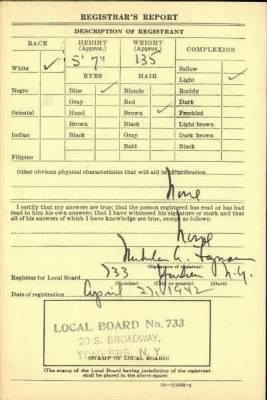 REGISTRAR'S REPORT
DESCRIPTION OF REGISTRANT
RACE HEIGHT (Approx.) WEIGHT (Approx.) COMPLEXION
5' 7" 135
White ✓ Sallow
EYES HAIR Light ✓
Negro Blue ✓ Blonde Ruddy
Gray Red Dark
Oriental Hazel Brown ✓ Freckled
Brown Black Light brown
Indian Black Gray Dark brown
Bald Black
Filipino
Other obvious physical characteristics that will aid in identification
None
I certify that my answers are true; that the person registered has read or has had
read to him his own answers; that I have witnessed his signature or mark and that
all of his answers of which I have knowledge are true, except as follows:
None
(Signature of registrar)
Registrar for Local Board 733 Yonkers N.Y.
(Number) (City or county) (State)
Date of registration April 27, 1942
LOCAL BOARD No. 733
20 S. BROADWAY,
YONKERS, N. Y.
(STAMP OF LOCAL BOARD)
(The stamp of the Local Board having jurisdiction of the registrant
shall be placed in the above space)